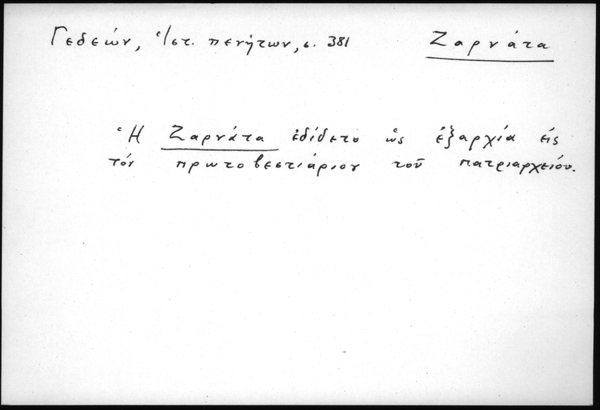 Γεδεών, Ἱστ. πενήτων, σ. 381 Ζαρνάτα
Ἡ Ζαρνάτα ἐδίδετο ὡς ἐξαρχία εἰς
τόν πρωτοβεστιάριον τοῦ πατριαρχείου.